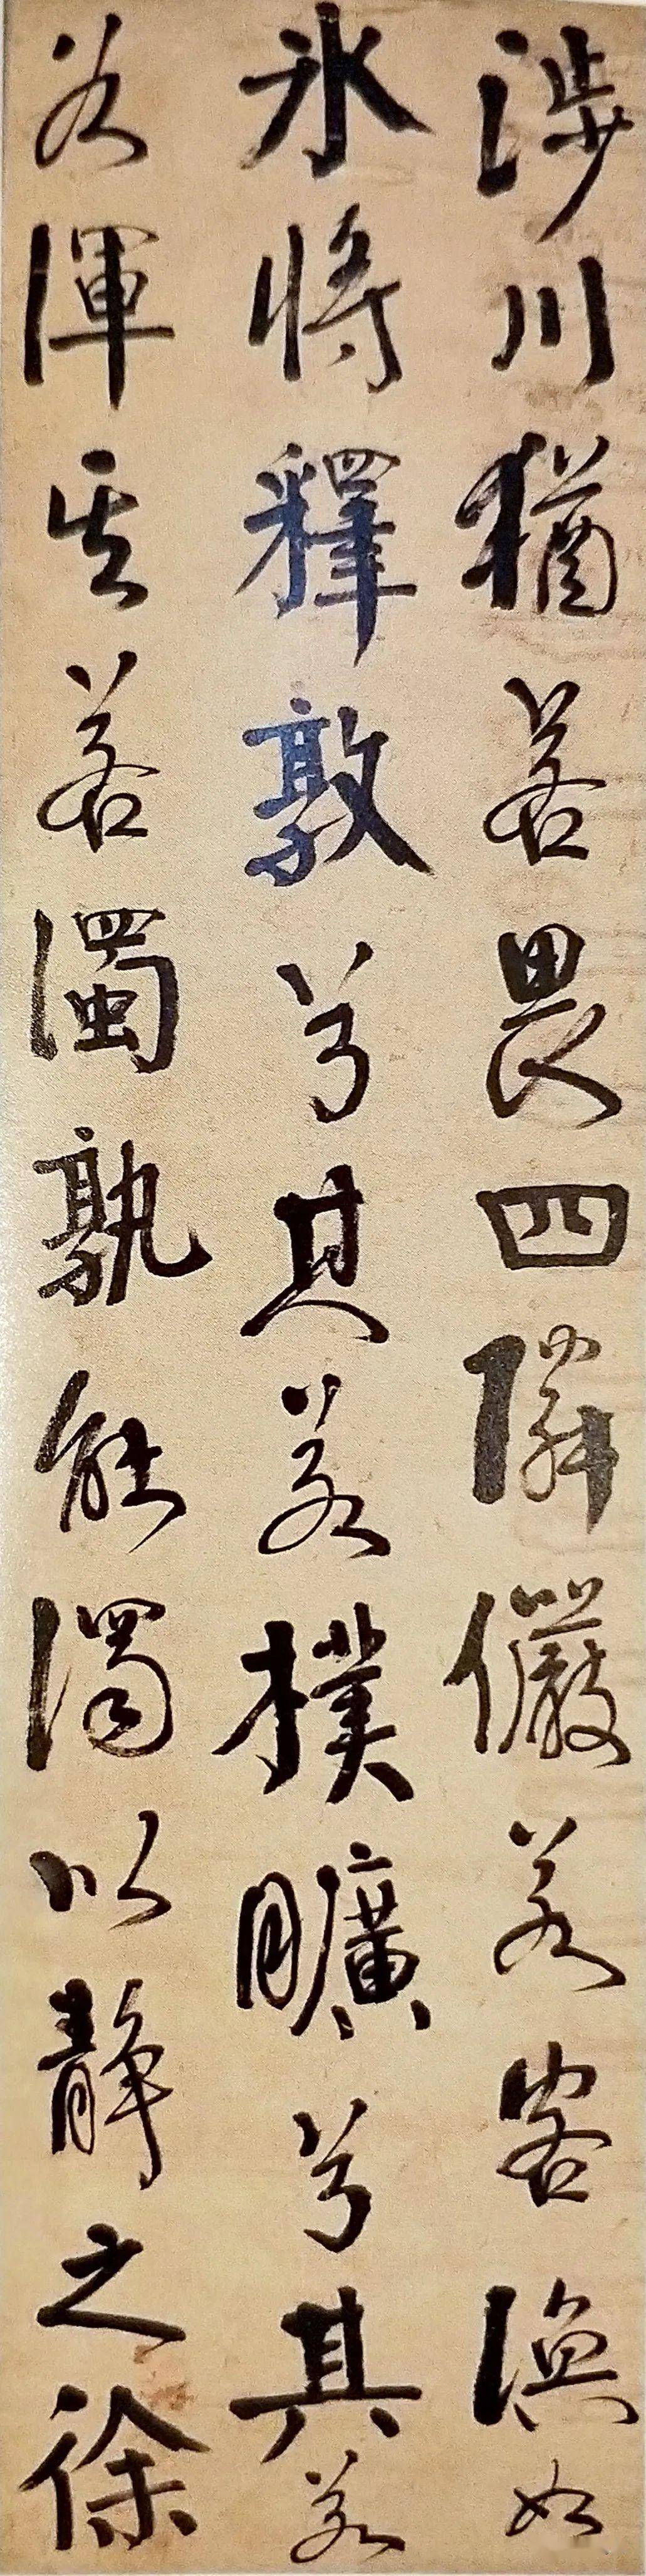 涉川猶若畏四隣儼若客渙如
氷將釋敦兮其若樸曠兮其若
谷渾其若濁孰能濁以靜之徐